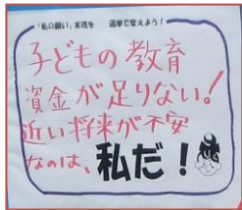 「私の願い」実現を 選挙で変えよう！
子どもの教育
資金が足りない！
近い将来が不安
なのは、私だ！